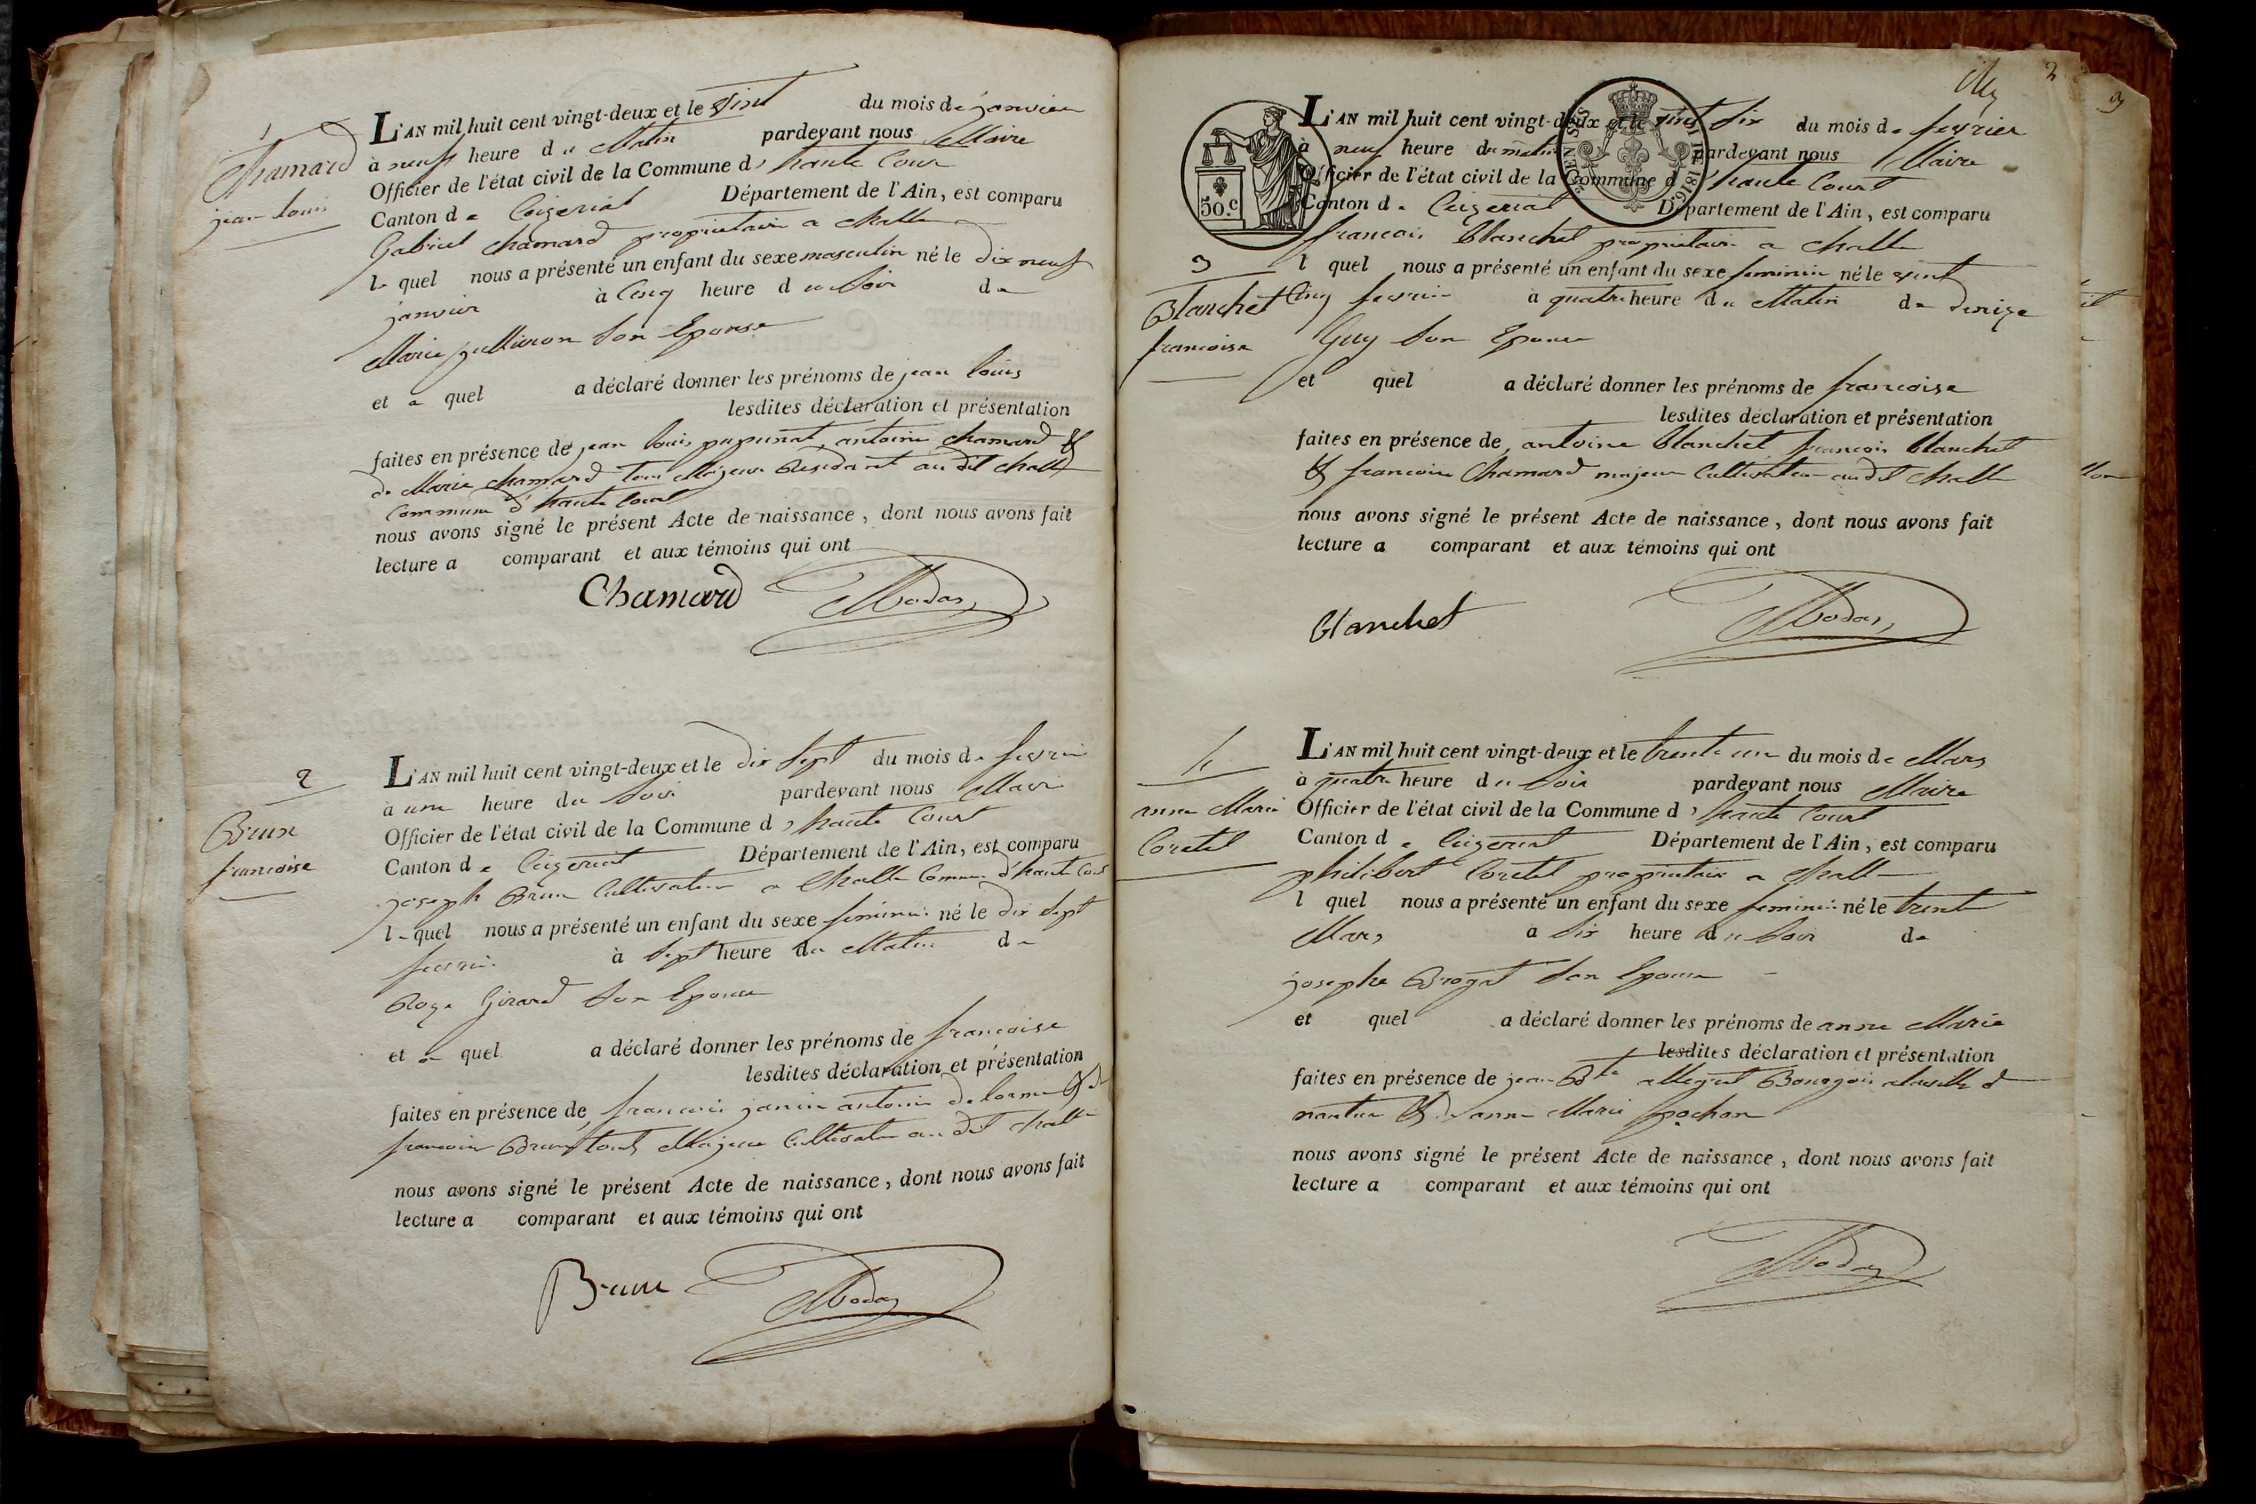 1
Chamard
jean louis
L'AN mil huit cent vingt-deux et le vint du mois de janvier
à neuf heure du Matin pardevant nous Maire
Officier de l'état civil de la Commune d'haute Cour
Canton de Ceizeriat Département de l'Ain, est comparu
Gabriel Chamard propriétaire a Challe
le quel nous a présenté un enfant du sexe masculin né le dix neuf
janvier à Cinq heure du Soir de
Marie son Epouse
et a quel a déclaré donner les prénoms de jean louis
lesdites déclaration et présentation
faites en présence de jean louis antoine chamard &
de Marie chamard tous Majeur Résidant au dit challe
Commune d'haute Court
nous avons signé le présent Acte de naissance, dont nous avons fait
lecture a comparant et aux témoins qui ont
Chamard
2
Brun
francoise
L'AN mil huit cent vingt-deux et le dix Sept du mois de fevrier
à une heure du Soir pardevant nous Maire
Officier de l'état civil de la Commune d'haute Court
Canton de Ceizeriat Département de l'Ain, est comparu
joseph Brun Cultivateur a Challe Commune d'haute Cour
le quel nous a présenté un enfant du sexe feminin né le dix Sept
fevrier à Sept heure du Matin de
Roze Girard Son Epouse
et a quel a déclaré donner les prénoms de francoise
lesdites déclaration et présentation
faites en présence de francois janin antoine delorme & de
francois Brun tous Majeur Cultivateur au dit challe
nous avons signé le présent Acte de naissance, dont nous avons fait
lecture a comparant et aux témoins qui ont
Brun
2
3
50.C
1816
L'AN mil huit cent vingt-deux et le vint Six du mois de fevrier
à neuf heure du matin pardevant nous Maire
Officier de l'état civil de la Commune d'haute Court
Canton de Ceizeriat Département de l'Ain, est comparu
francois Blanchet propriétaire a Challe
3
Blanchet
francoise
l quel nous a présenté un enfant du sexe feminin né le vint
Cinq fevrier à quatre heure du Matin de denize
Guy Son Epouse
et quel a déclaré donner les prénoms de francoise
lesdites déclaration et présentation
faites en présence de antoine Blanchet francois Blanchet
& francoise Chamard majeur Cultivateur audit Challe
nous avons signé le présent Acte de naissance, dont nous avons fait
lecture a comparant et aux témoins qui ont
Blanchet
4
anne Marie
Coretel
L'AN mil huit cent vingt-deux et le trente un du mois de Mars
à quatre heure du Soir pardevant nous Maire
Officier de l'état civil de la Commune d'haute Court
Canton de Ceizeriat Département de l'Ain, est comparu
philibert Coretel propriétaire a Challe
l quel nous a présenté un enfant du sexe feminin né le trente
Mars à Six heure du Soir de
josephe Son Epouse
et quel a déclaré donner les prénoms de anne Marie
lesdites déclaration et présentation
faites en présence de jean Bte
nantua & anne Marie pochon
nous avons signé le présent Acte de naissance, dont nous avons fait
lecture a comparant et aux témoins qui ont